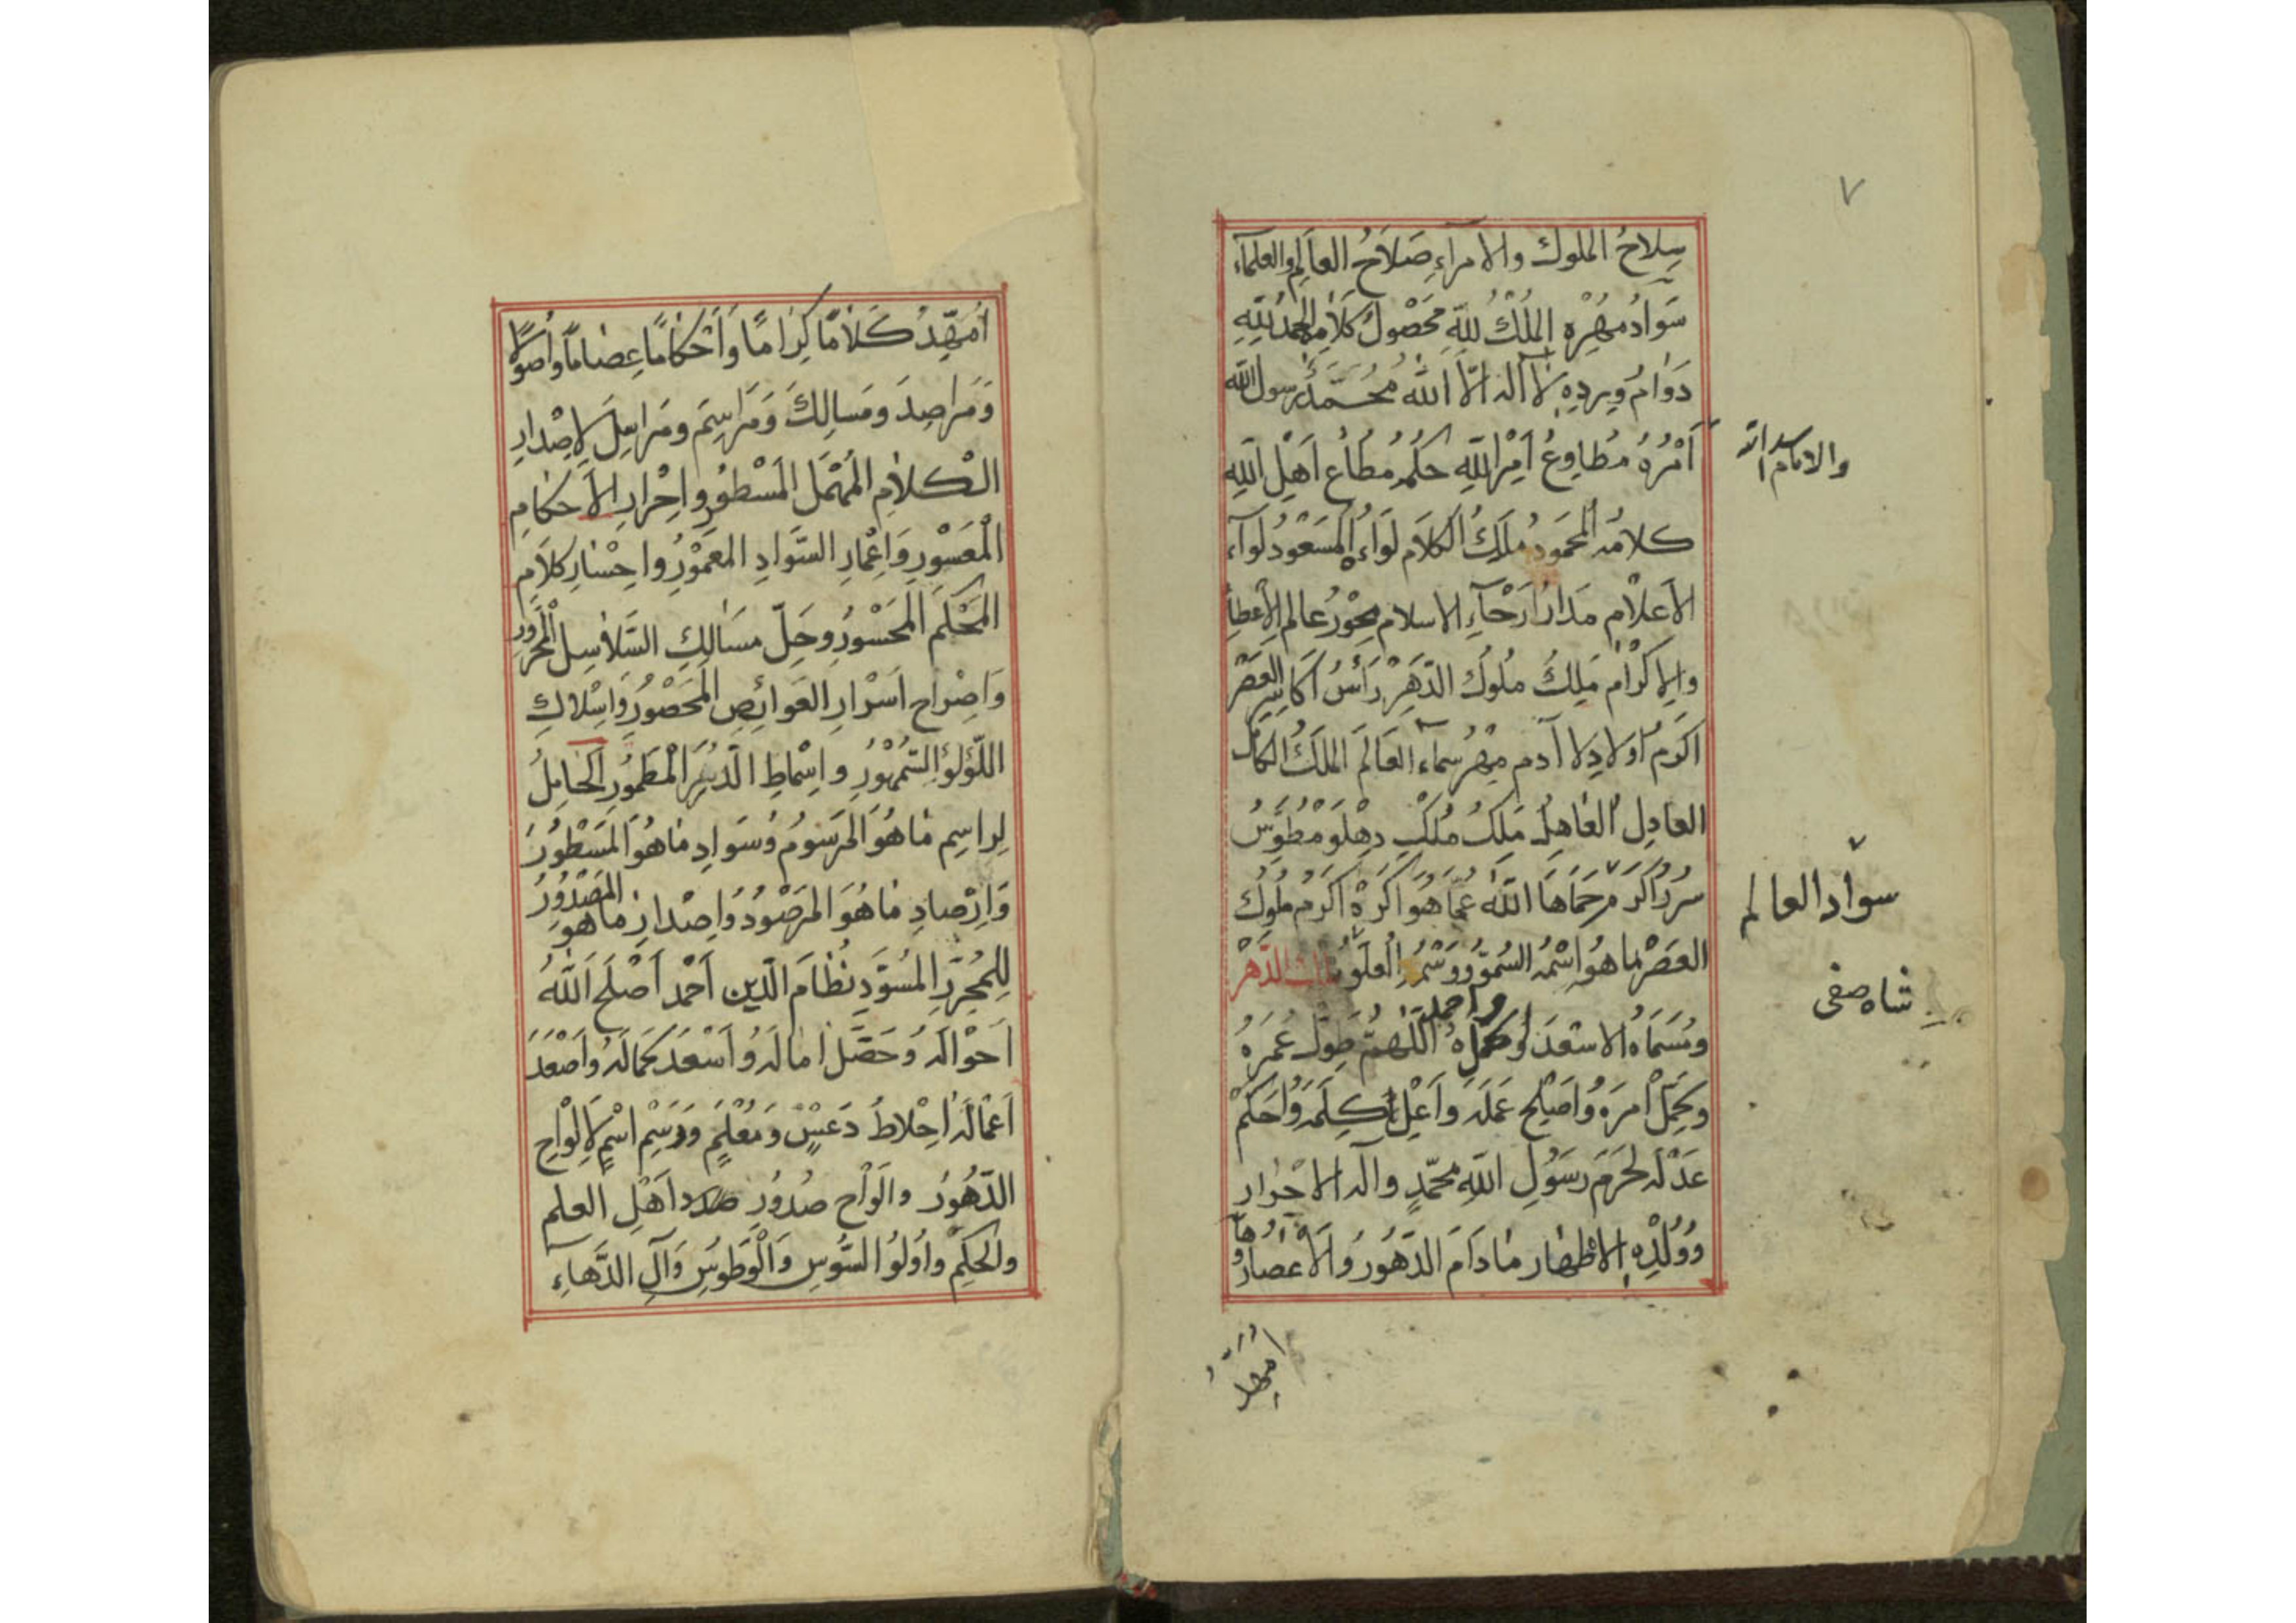 ٧
سِلاحُ الملوك والامرآءِ صَلاَحُ العالِم والعلمآء
سَوادُ مهْرِه المُلْكُ للّهِ مَحْصُولُ كَلامِهِ الحمدُ لِلّهِ
دَوامُ وِردِهِ لا اله الّا الله مُحُمَّدٌ رسول الله
اَمْرُهُ مُطاوِعُ اَمْرِ اللّهِ حكمُه مُطاع اَهْلِ اللّهِ
والامام اسد الله
كلامُه المحمودُ مَلِكُ الكلام لِوَاءُه المَسَعْودُ لوآء
الاَعلام مَدارُ اَرْحآءِ الاسلام مِحْوَرُ عالم الاِعطآء
والاِكْرَام مَلِكُ مُلُوك الدّهرِ رَأسُ اَكاسِرِ العَصْر
اكرمُ اولادِ آدم مِهْرُ سماء العَالَم المَلكُ الكامل
العادِل العاهِلُ مَلِكُ مُلكِ دِهْلَو مطوّس
سواد العالم
اكره رَحَمَاهَا اللّهُ عمّا هو اكرَهْ اكرم مُلُوك
العَصْر ما هو اسْمُه السُموّ وَوَسْمُه العلوّ الدّهر
شاه صفی
ومُسَمّاهُ الاسْعَد واحمد اللّهُمَّ طوّل عُمرَهُ
وكَمِّلْ اَمرَهُ واَصْلِح عَمَلَه وَاَعْلِ كلمه واَحكم
عَدْلَه لِحَرَمِ رَسُولِ اللّهِ محمّدٍ واله الاحرار
وَوُلْدِهِ الاطهار مادَامَ الدّهُورُ والاَعصارُ
اُمَهِّدُ
اُمَهِّدُ كَلامًا كِرامًا وَاَحكامًا عِصَاماً واُصولاً
وَمَراصِدَ ومَسالِكَ وَمَراسِمَ ومَراحِلَ لاِصْدارِ
الكَلامِ المُهْمَل المَسْطُورِ واِحْرارِ الاَحكامِ
الْمَعْسُورِ وَاِعْمارِ السَّوادِ المَعمُوْرِ واِحْسارِ كلامِ
المُحْكَمِ المَحْسُورِ وحَلّ مسَالكِ السَّلاسِل المحرورِ
وَاِصْراح اَسْرارِ العَوائصِ المَحصُورِ وَاِسْلاكِ
اللّؤلؤِ السُّمْهُوْرِ واِسْماطِ الدُّرَرِ المْطَمُورِ الحَامِلُ
لِراسِمِ مَاهُوَ المَرسُومُ وَسَوادِ مَاهُوَ المَسْطُورُ
وَاِرْصادِ مَاهُوَ المَرصُودُ وَاِصْدارِ ماهو المَصْدُوْرُ
لِلمُحرِّر المُسَوِّدِ نظامَ الدّين اَحْمد اَصْلَحَ اللّٰهُ
اَحوالَه وَحَصَّلَ امالَه وَاَسْعَدَ كَمالَه وَاَصْعَدَ
اَعْمالَه اِحْلاطُ دَعسٍ وَمُعْلَمٍ وَرَسْمِ اسْمٍ لاَِلْواحِ
الدّهُورُ والَوْاحِ صُدُورِ صلادِ اَهْلِ العلم
والحِكَمْ واُولُوا السُّوسِ وَالْوَطُوسِ وَآلِ الدَّهاءِ